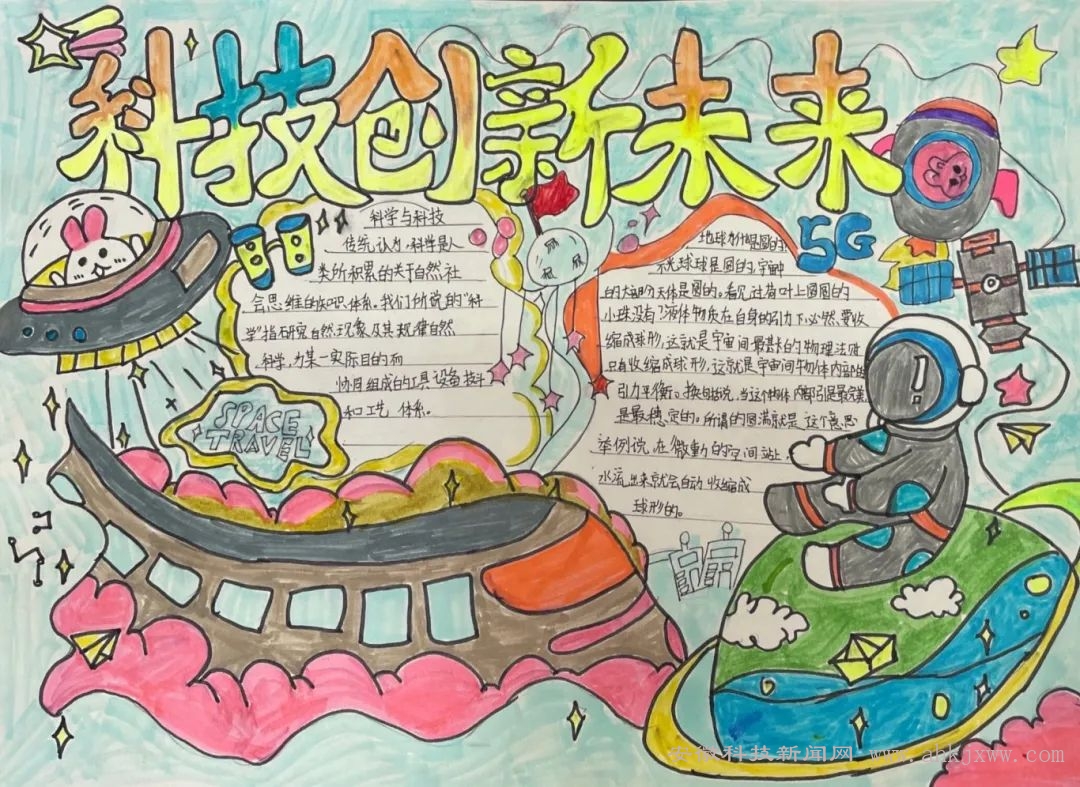 科技创新未来
科学与科技
传统认为,科学是人
类所积累的关于自然,社
会思维的知识体系,我们所说的"科
学"指研究自然现象及其规律自然
科学,力某一实际目的而
协同组成的工具设备技术
和工艺体系。
SPACE
TRAVEL
5G
地球为什么是圆的
不光球球是圆的,宇宙中
的大部分天体是圆的。看见过荷叶上圆圆的
小珠没有?液体物质在自身的引力下必然要收
缩成球形,这就是宇宙间最基本的物理法则
只有收缩成球形,这就是宇宙间物体内部的
引力平衡。换句话说,当这个物体内部引是最完美
是最稳定的。所谓的圆满就是这个意思
举例说,在微重动的空间站上
水流出来就会自动收缩成
球形的。
安徽科技新闻网 www.ahkjxww.com